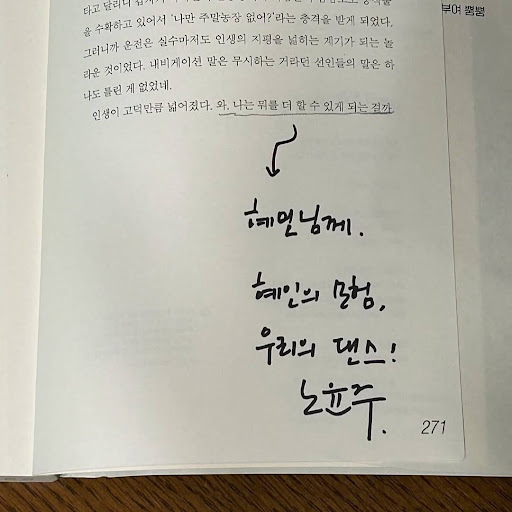 타고 달리니
을 수확하고 있어서 ‘나만 주말농장 없어?’라는 충격을 받게 되었다.
그러니까 운전은 실수마저도 인생의 지평을 넓히는 계기가 되는 놀
라운 것이었다. 내비게이션 말은 무시하는 거라던 선인들의 말은 하
나도 틀린 게 없었네.
인생이 고덕만큼 넓어졌다. 와, 나는 뭐를 더 할 수 있게 되는 걸까
혜인님께.
혜인의 모험,
우리의 댄스!
노윤주.
271
부여 뿜뿜